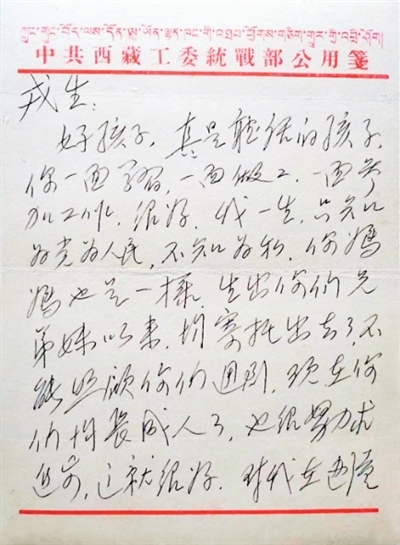 ཀྲུང་གུང་བོད་ལས་དོན་ཨུ་ཡོན་ལྷན་ཁང་གི་འཐབ་ཕྱོགས་གཅིག་གྱུར་གྱི་འབྲི་ཤོག།
中共西藏工委統戰部公用箋
戎生:
好孩子,真是聽话的孩子,
你一面学習,一面做工,一面参
加工作,很好,我一生,只知
为党为人民,不知为私,你媽
媽也是一樣,生出你们兄
弟妹以来,均寄托出去了,不
能照顾你们週到,现在你
们均長成人了,也很努力求
进步,这就很好.时代在